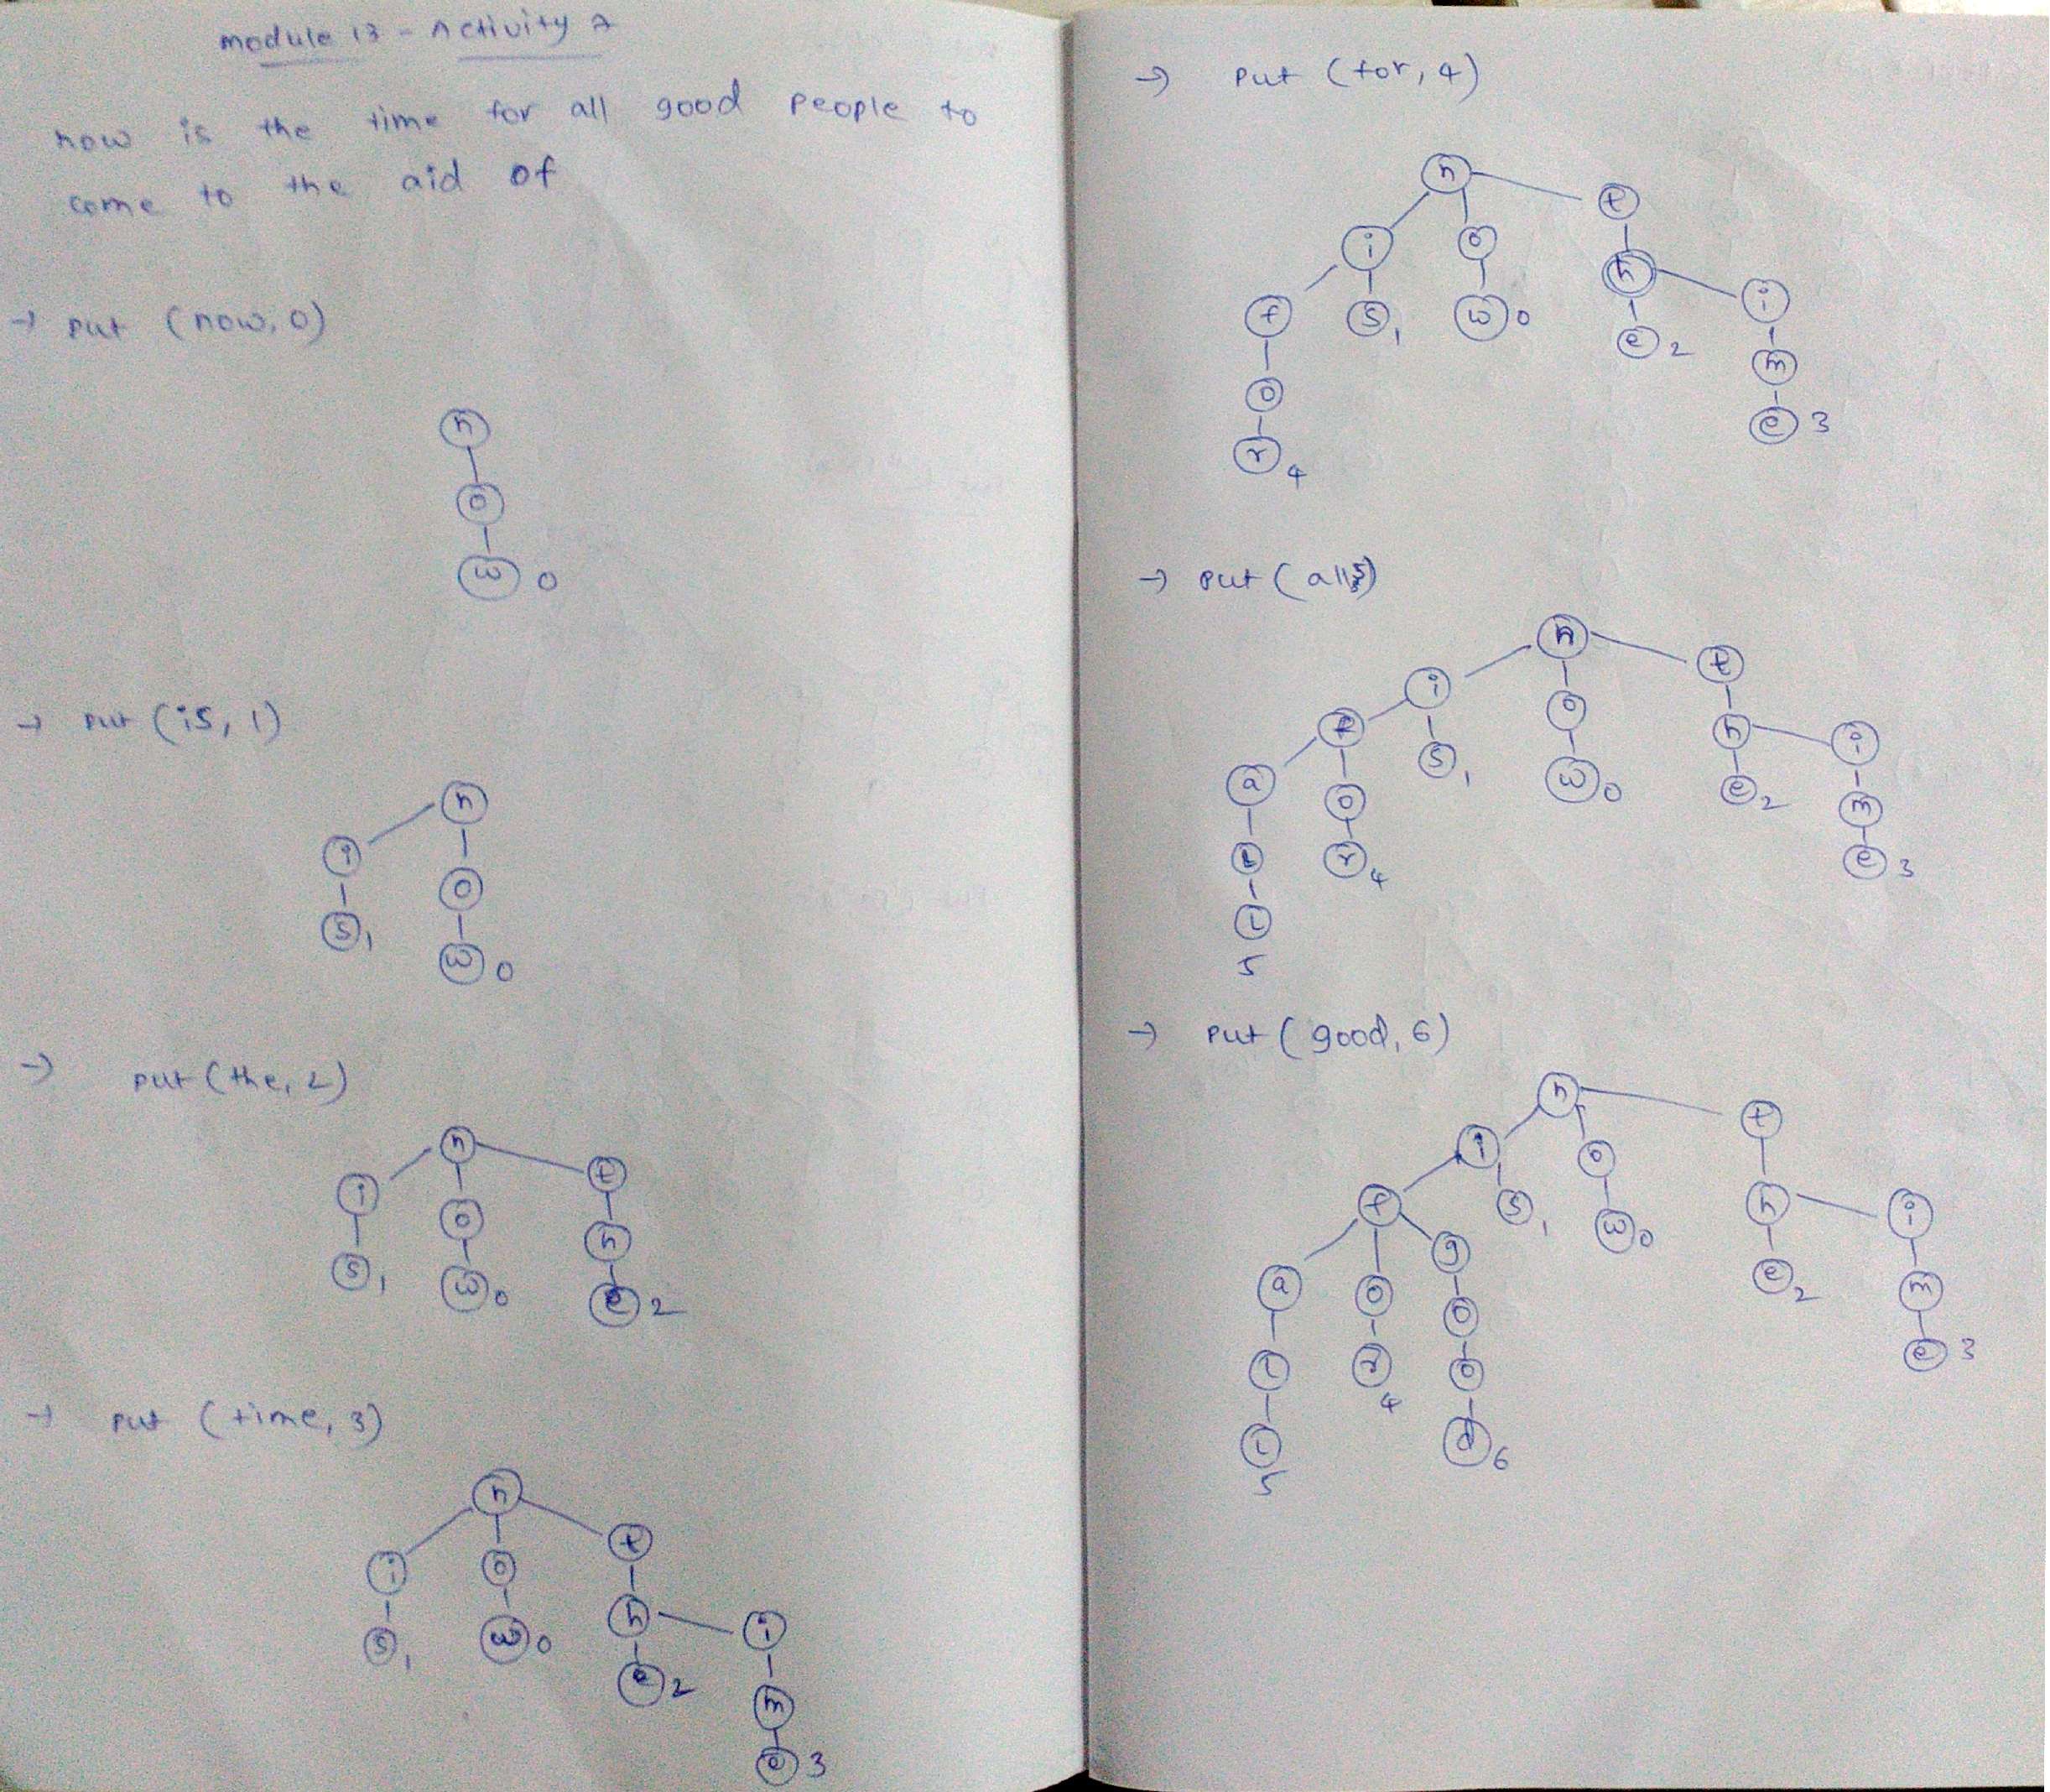 Module 13 - Activity 7
now is the time for all good people to
come to the aid of
→ put (now, 0)
n
o
w 0
→ put (is, 1)
n
i
o
s 1
w 0
→ put (the, 2)
n
t
i
o
h
s 1 w 0 e 2
→ put (time, 3)
n
t
i o
h i
s 1 w 0
e 2
m
e 3
→ put (for, 4)
n
t
i o
h
i
f s 1 w 0
e 2
m
o
e 3
r 4
→ put (all, 5)
n
t
i
o
f h i
s 1
a w 0 e 2
o m
l r 4 e 3
l
5
→ put (good, 6)
n
t
i o
f s 1 w 0 h i
g
a o e 2 m
o
l r 4 o e 3
l d 6
5